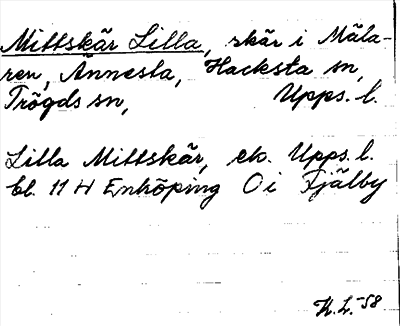 Mittskär Lilla, skär i Mäla-
ren, Ännesta, Hacksta sn,
Trögds sn, Upps. l.
Lilla Mittskär, ek. Upps. l.
bl. 11 H Enköping O i Fjälby
H. L. -58